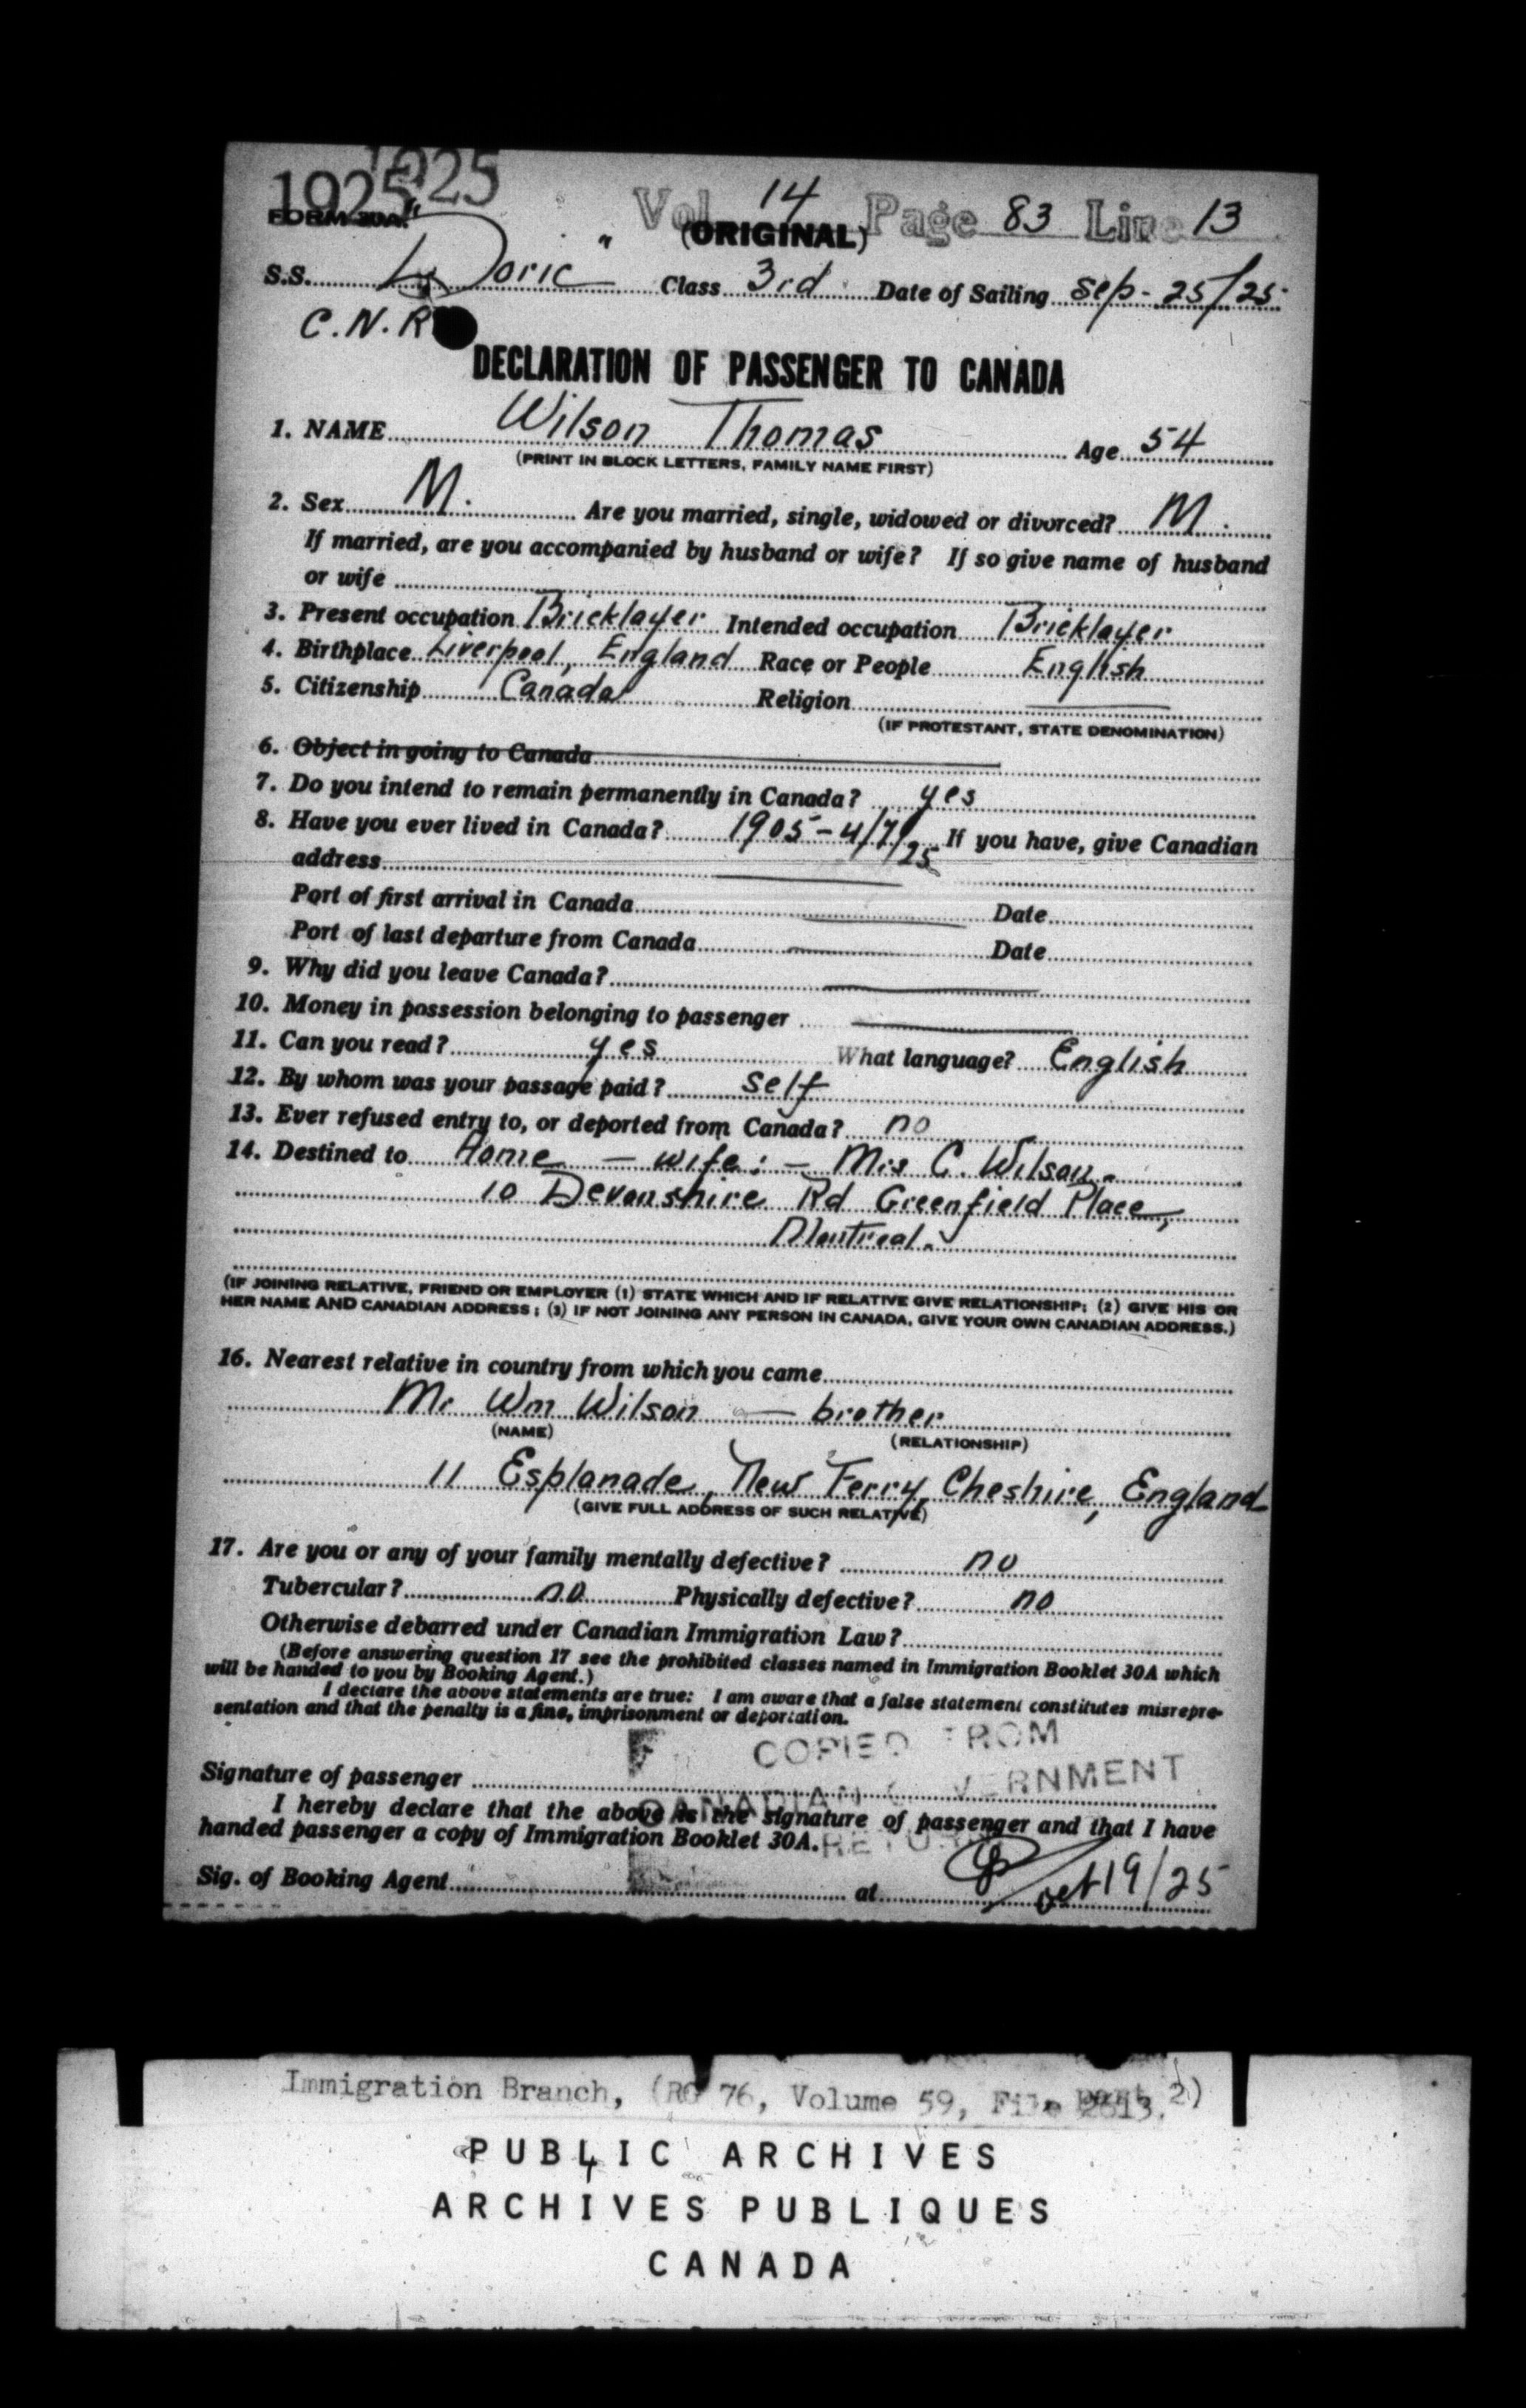 1925 1925
Vol 14 Page 83 Line 13
FORM 30A.
(ORIGINAL)
S.S. "Doric" Class 3rd Date of Sailing Sep-25/25
C.N.R
DECLARATION OF PASSENGER TO CANADA
1. NAME Wilson Thomas Age 54
(PRINT IN BLOCK LETTERS, FAMILY NAME FIRST)
2. Sex M. Are you married, single, widowed or divorced? M.
If married, are you accompanied by husband or wife? If so give name of husband
or wife
3. Present occupation Bricklayer Intended occupation Bricklayer
4. Birthplace Liverpool, England Race or People English
5. Citizenship Canada Religion
(IF PROTESTANT, STATE DENOMINATION)
6. Object in going to Canada
7. Do you intend to remain permanently in Canada? yes
8. Have you ever lived in Canada? 1905-4/7/25 If you have, give Canadian
address
Port of first arrival in Canada Date
Port of last departure from Canada Date
9. Why did you leave Canada?
10. Money in possession belonging to passenger
11. Can you read? yes What language? English
12. By whom was your passage paid? self
13. Ever refused entry to, or deported from Canada? no
14. Destined to Home - wife: - Mrs C. Wilson.
10 Devonshire Rd Greenfield Place,
Montreal.
(IF JOINING RELATIVE, FRIEND OR EMPLOYER (1) STATE WHICH AND IF RELATIVE GIVE RELATIONSHIP; (2) GIVE HIS OR
HER NAME AND CANADIAN ADDRESS; (3) IF NOT JOINING ANY PERSON IN CANADA, GIVE YOUR OWN CANADIAN ADDRESS.)
16. Nearest relative in country from which you came
Mr Wm Wilson - brother
(NAME) (RELATIONSHIP)
11 Esplanade, New Ferry, Cheshire, England
(GIVE FULL ADDRESS OF SUCH RELATIVE)
17. Are you or any of your family mentally defective? no
Tubercular? no Physically defective? no
Otherwise debarred under Canadian Immigration Law?
(Before answering question 17 see the prohibited classes named in Immigration Booklet 30A which
will be handed to you by Booking Agent.)
I declare the above statements are true: I am aware that a false statement constitutes misrepre-
sentation and that the penalty is a fine, imprisonment or deportation.
COPIED FROM
Signature of passenger
CANADIAN GOVERNMENT
I hereby declare that the above is the signature of passenger and that I have
handed passenger a copy of Immigration Booklet 30A.
RETURN
Sig. of Booking Agent at Oct 19/25
Immigration Branch, (RG 76, Volume 59, File 2613, part 2)
PUBLIC ARCHIVES
ARCHIVES PUBLIQUES
CANADA